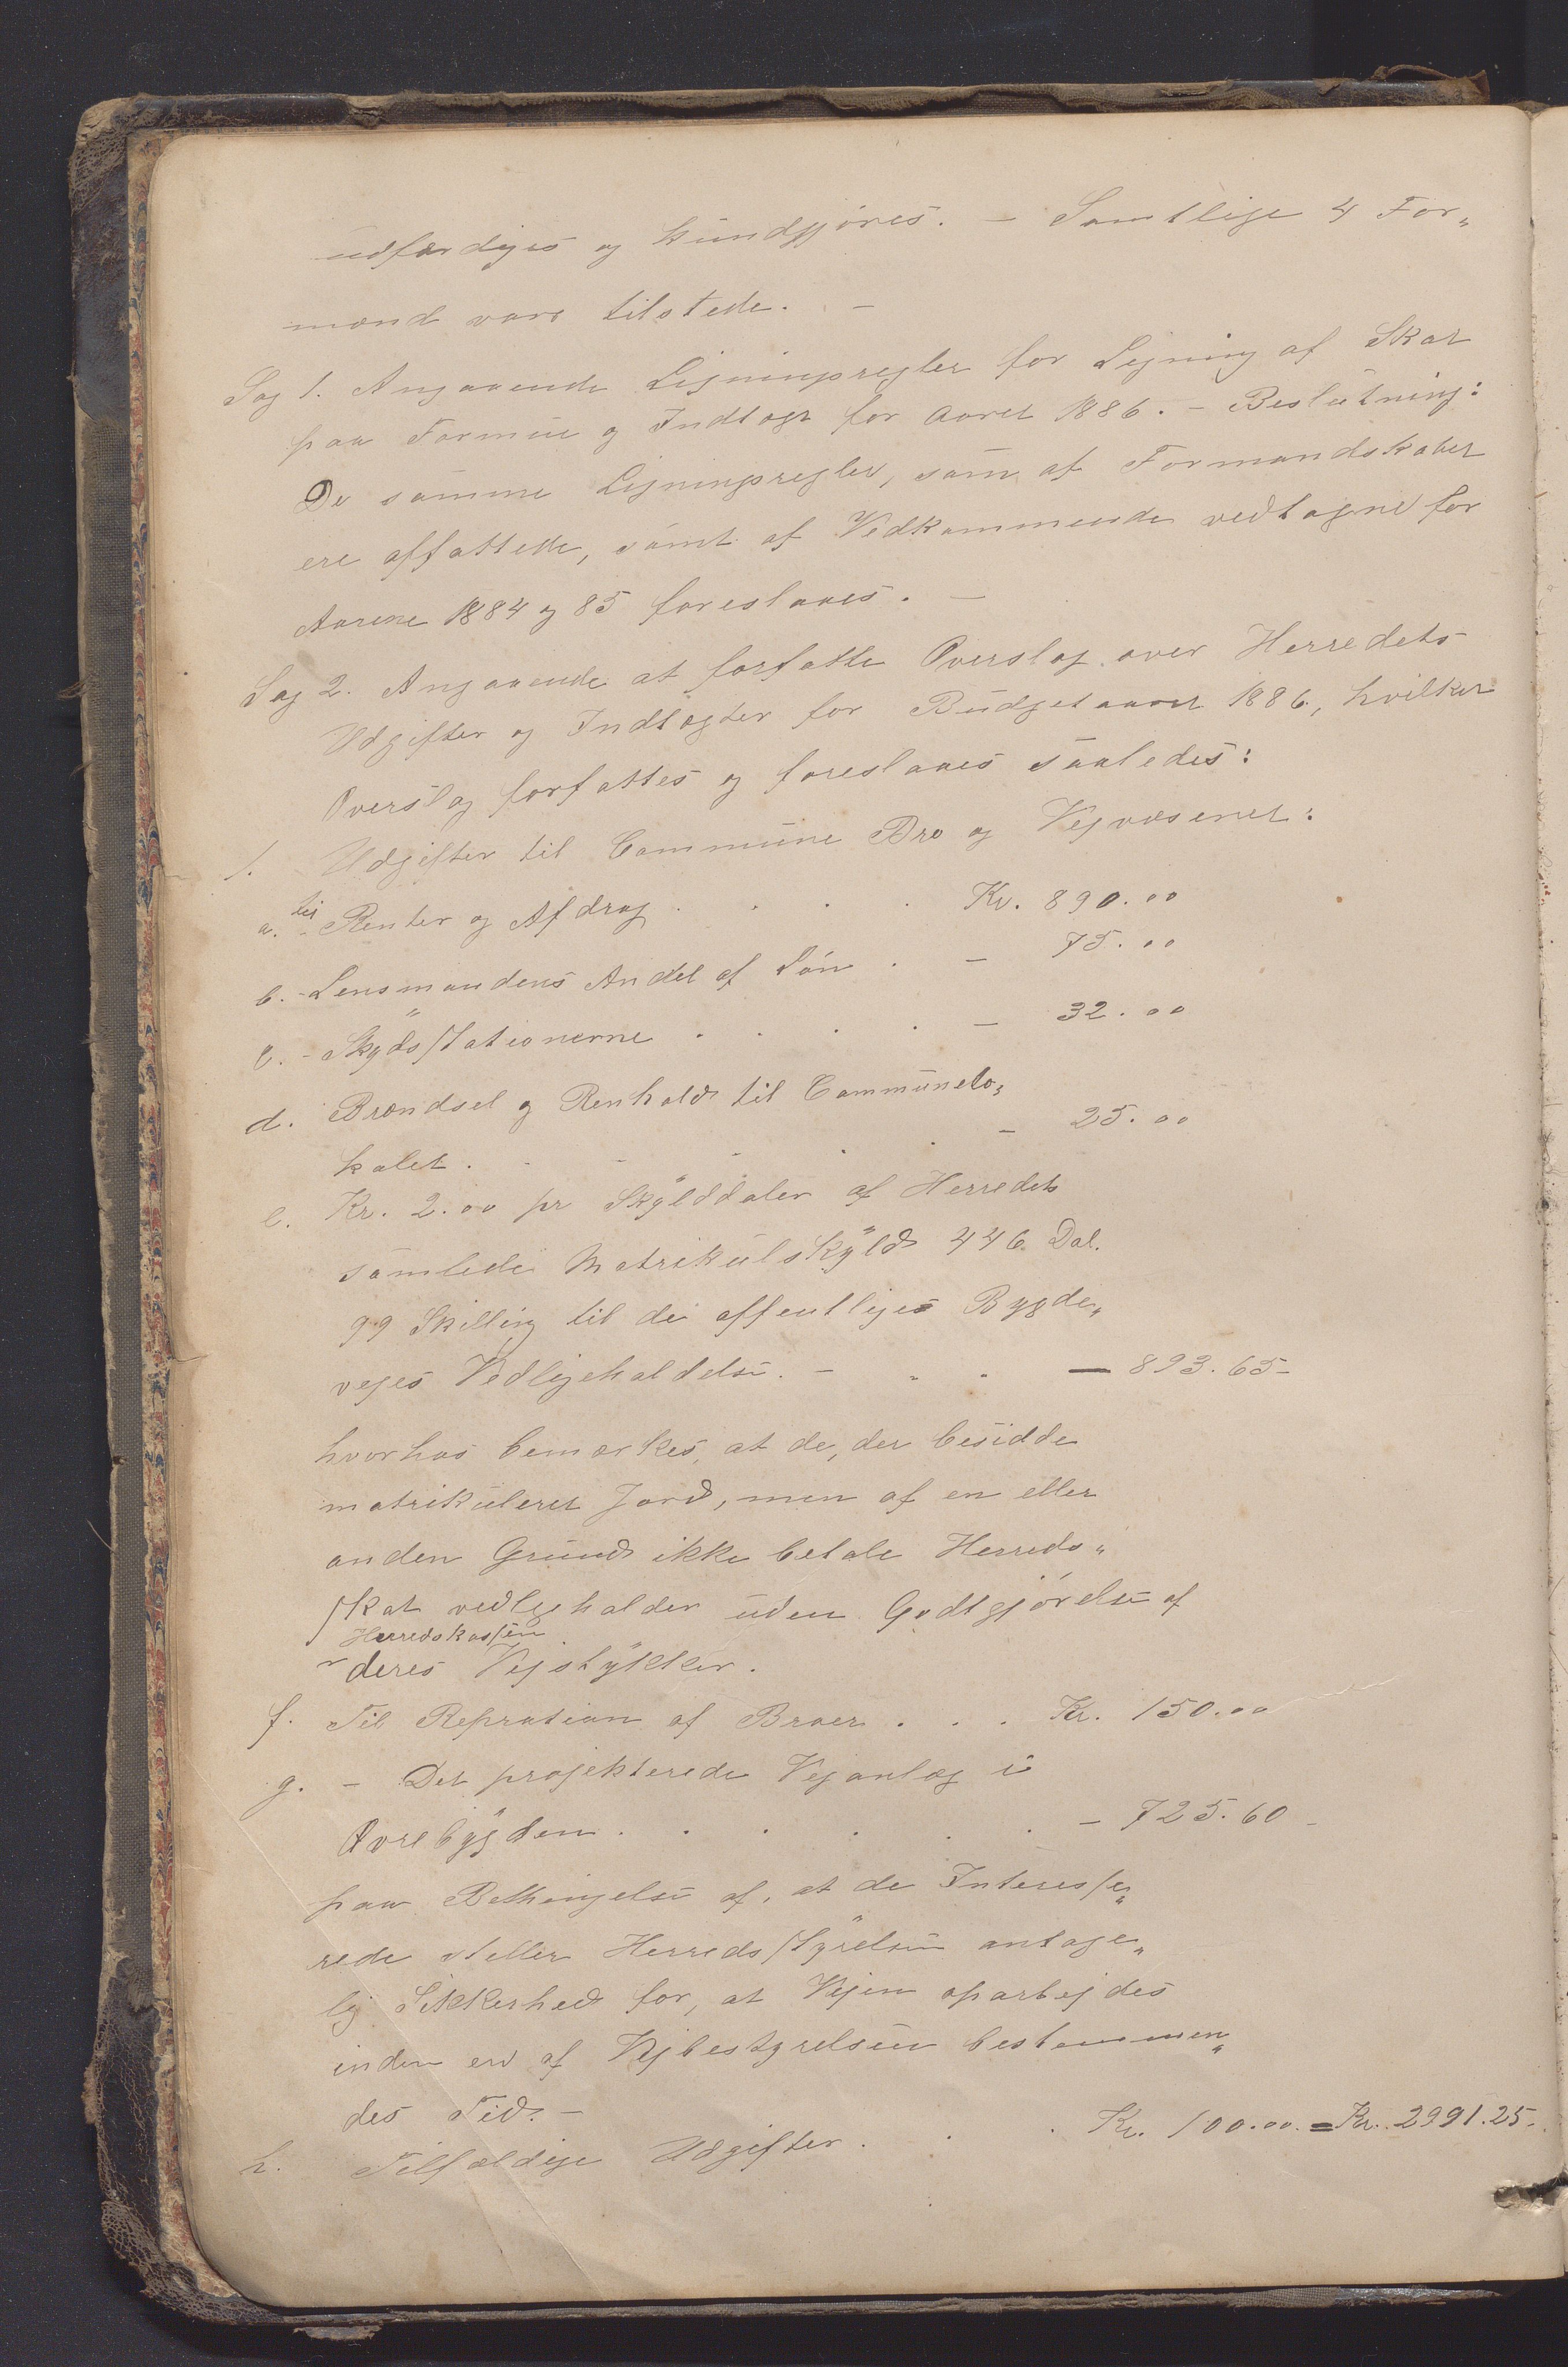 udfærdiges og kundgjöres. – Samtlige 4 For„
mænd vare tilstede. –
Sag 1. Angaaende Ligningsregler for Ligning af Skat
paa Formue og Indtægt for Aaret 1886. – Beslutning:
De samme Ligningsregler, som af Formandskabet
ere affattede, samt af Vedkommende vedtagne for
Aarene 1884 og 85 foreslaaes. –
Sag 2. Angaaende at forfatte Overslag over Herredets
Udgifter og Indtægter for Budgetaaret 1886, hvilket
Overslag forfattes og foreslaaes saaledes:
1. Udgifter til Commune Bro og Vejvæsenet:
a. til Renter og Afdrag . . . . Kr. 890.00
b. - Lensmandens Andel af Lön . – 75.00
c. - Skydsstationerne . . . . – 32.00
d. Brændsel og Renhold til Communelo„
kalet. . . . . . – 25.00
e. Kr. 2.00 pr Skylddaler af Herredets
samlede Matrikulskyld 446 Dal.
99 Skilling til de offentliges Bygde„
vejes Vedligeholdelse. – . . — 893.65–
hvorhos bemærkes, at de, der besidde
matrikuleret Jord, men af en eller
anden Grund ikke betale Herreds„
skat vedligeholder uden Godtgjörelse af
Herredskassen
deres Vejstykker.
f. Til Repration af Broer . . . Kr. 150.00
g. – Det projekterede Vejanlæg i
Övrebygden . . . . . . – 725.60 –
paa Bethingelse af, at de Interesse„
rede stiller Herredsstyrelsen antage„
lig Sikkerhed for, at Vejen oparbejdes
inden en af Vejbestyrelsen bestemmen„
des Tid. –
h. Tilfældige Udgifter . . . Kr. 100.00. = Kr. 2991.25.